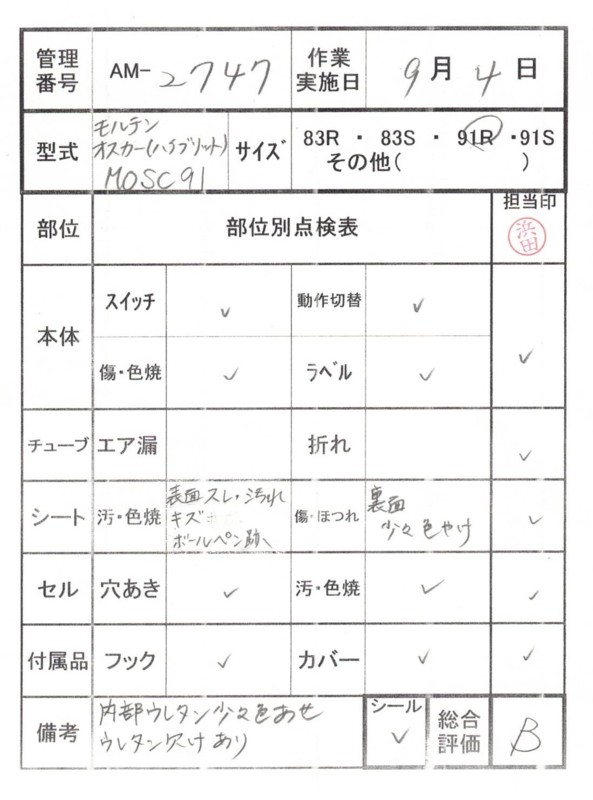 管理番号 AM-2747 作業実施日 9月4日
型式 モルテン オスカー(ハイブリット) MOSC91 サイズ 83R ・ 83S ・ 91R ・91S その他( )
部位 部位別点検表 担当印 浜田
本体 スイッチ ✓ 動作切替 ✓
傷・色焼 ✓ ラベル ✓ ✓
チューブ エア漏 折れ ✓
シート 汚・色焼 表面スレ・汚れ キズ ボールペン跡 傷・ほつれ 裏面 少々色やけ ✓
セル 穴あき ✓ 汚・色焼 ✓ ✓
付属品 フック ✓ カバー ✓ ✓
備考 内部ウレタン少々色あせ ウレタン欠けあり シール ✓ 総合評価 B